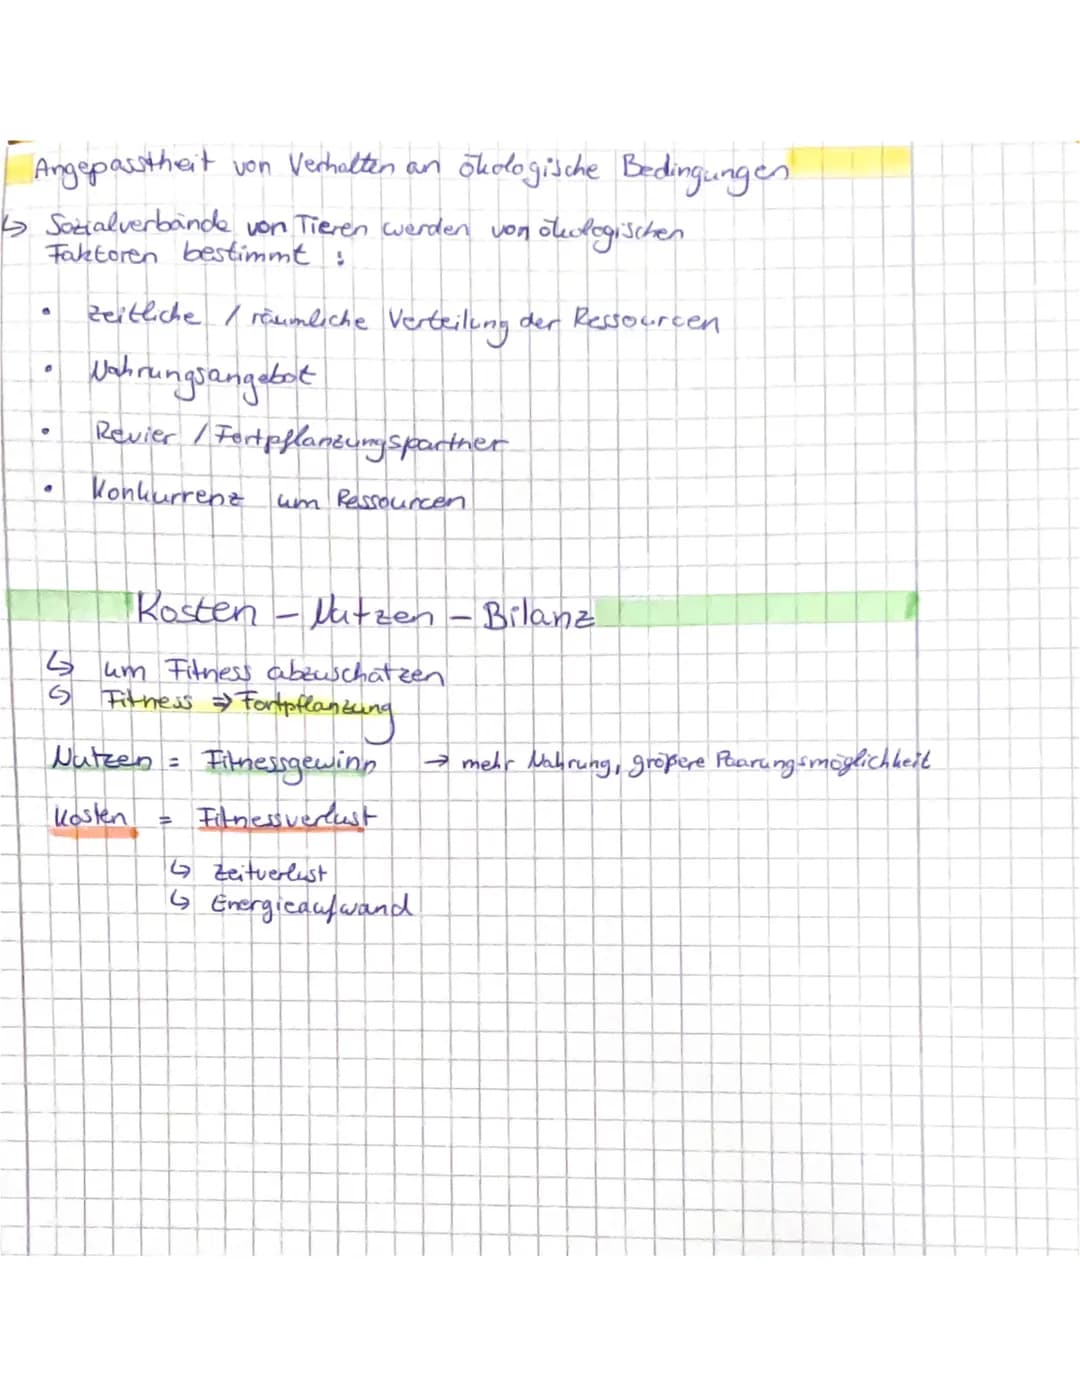 Angepasstheit von Verhalten an ökologische Bedingungen
↳ Sozialverbände von Tieren werden von ökologischen
Faktoren bestimmt :
• zeitliche / räumliche Verteilung der Ressourcen
• Nahrungsangebot
• Revier / Fortpflanzungspartner
• Konkurrenz um Ressourcen
Kosten - Nutzen - Bilanz
↳ um Fitness abzuschätzen
↳ Fitness ⇒ Fortpflanzung
Nutzen = Fitnessgewinn → mehr Nahrung, größere Paarungsmöglichkeit
Kosten = Fitnessverlust
↳ Zeitverlust
↳ Energieaufwand